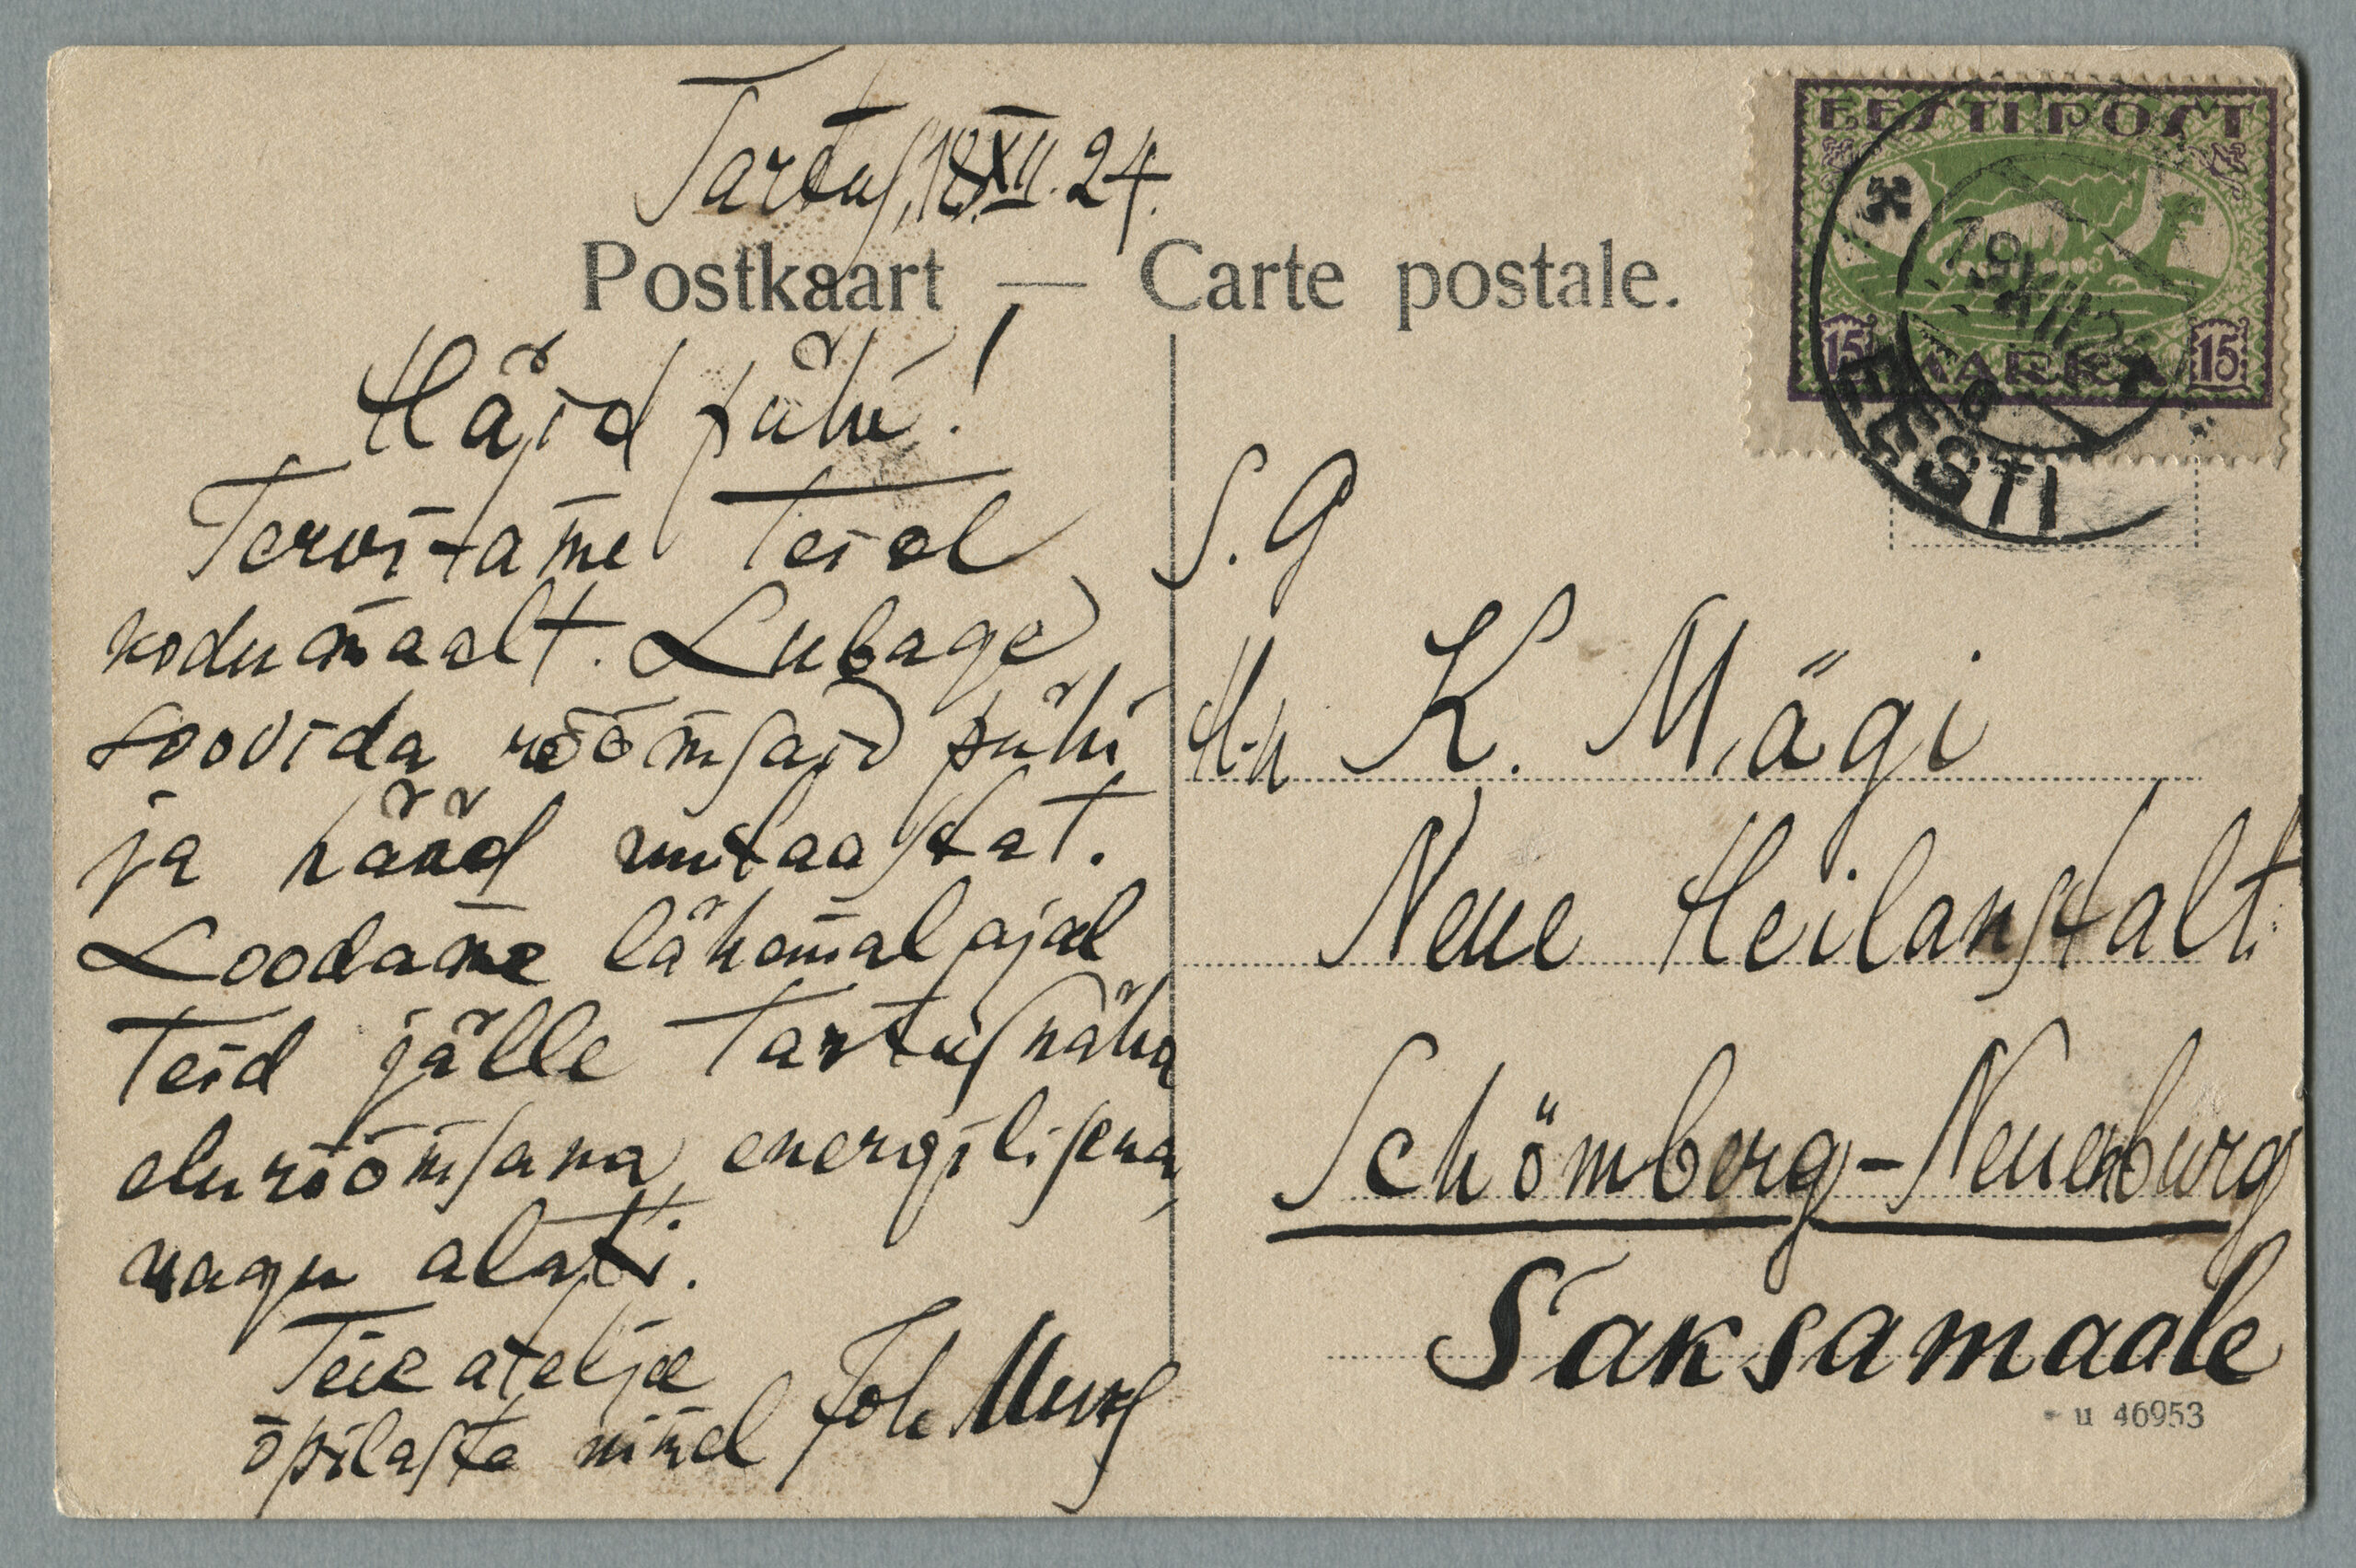 Tartus, 18.XII.24.
Postkaart — Carte postale.
Häid pühi!
Tervitame Teid
kodumaalt. Lubage
soovida rõõmsaid pühi
ja hääd uutaastat.
Loodame lähemal ajal
Teid jälle Tartus näha
elurõõmsana, energilisena,
nagu alati.
Teie ateljee
õpilaste nimel Joh.
EESTI POST
15 MARKA 15
19 XII 2
EESTI
S. G
H-n K. Mägi
Neue Heilanstalt.
Schömberg-Neuenburg
Saksamaale
u 46953